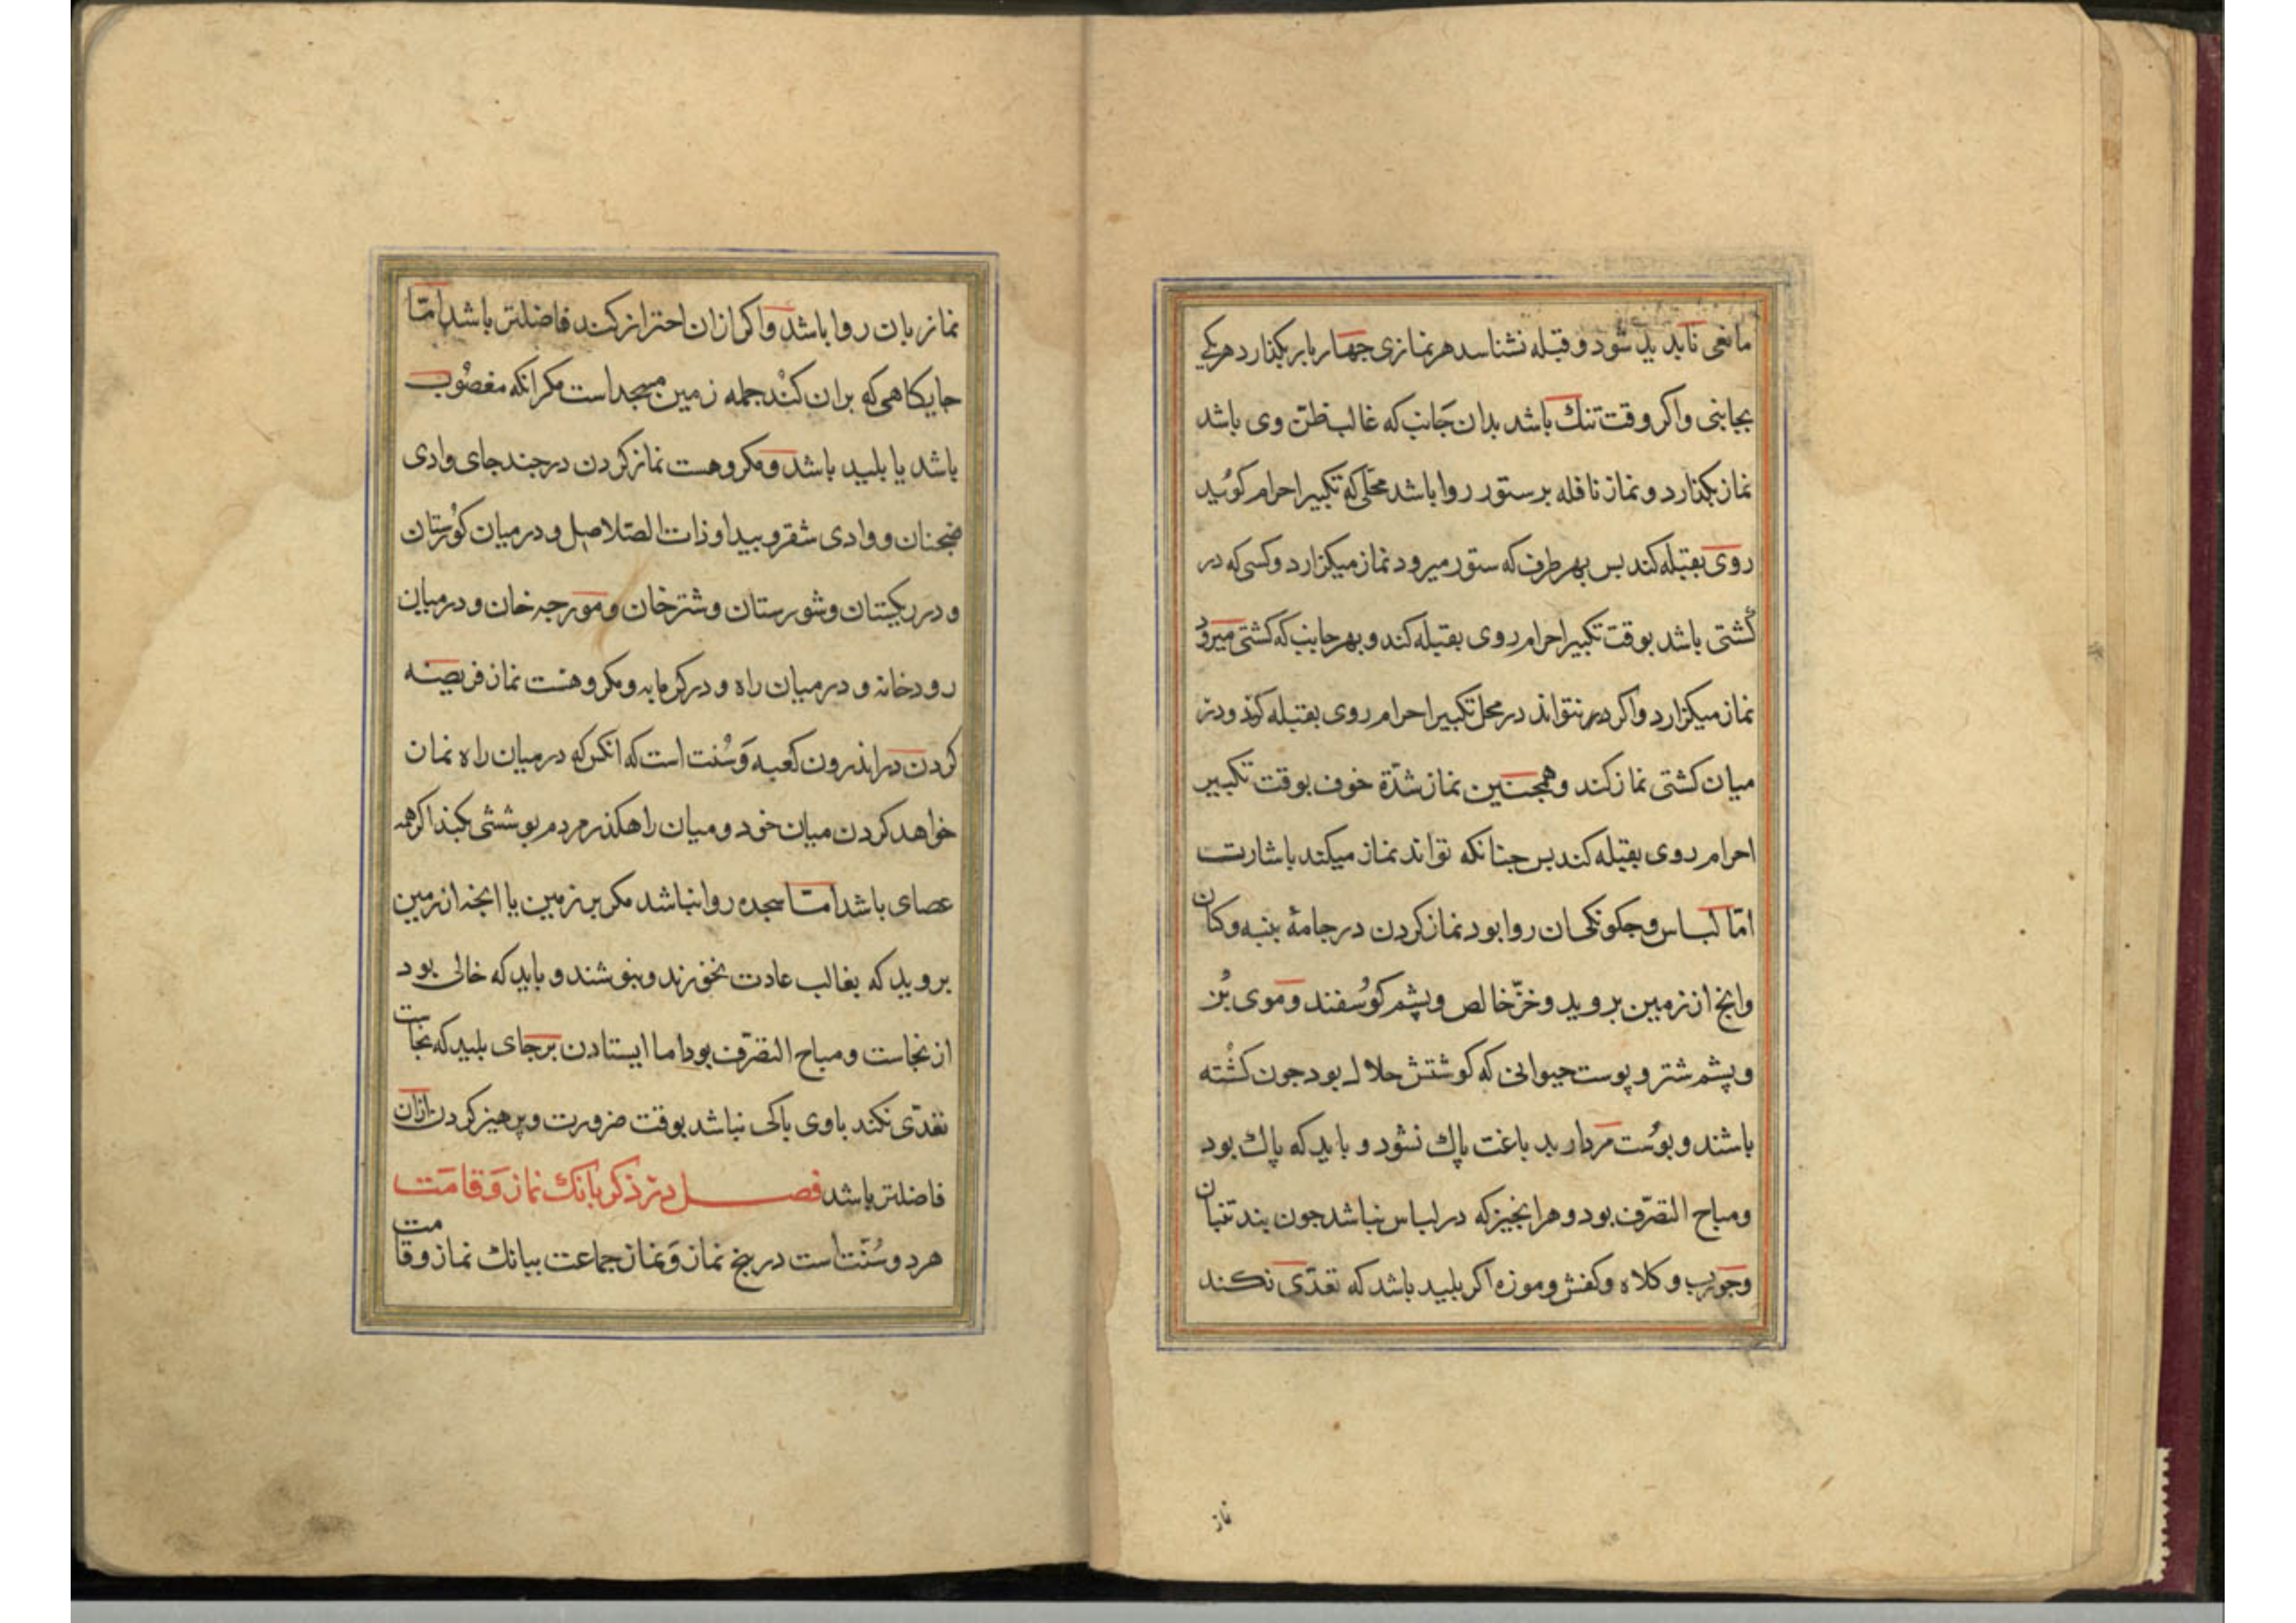 مانعی نابدید شود و قبله نشناسد هر نمازی جهار بار بکذارد هر یکی
بجابنی واکر وقت تنك باشد بدان جانب که غالب ظن وی باشد
نماز بکذارد و نماز نافله بر ستور روا باشد محلی که تکبیر احرام کوید
روی بقبله کند بس بهر طرف که ستور میرود نماز میکزارد و کسی که در
کشتی باشد بوقت تکبیر احرام روی بقبله کند و بهر جانب که کشتی میرود
نماز میکزارد واکر نتواند در محل تکبیر احرام روی بقبله کند ودر
میان کشتی نماز کند و همجنین نماز شدّة خوف بوقت تکبیر
احرام روی بقبله کند بس جنانکه تواند نماز میکند باشارت
امّا لباس و جکونکی ان روا بود نماز کردن در جامۀ بنبه وکتان
وانج از زمین بروید و خزّ خالص و پشم کوسفند و موی بُز
و پشم شتر و پوست حیوانی که کوشتش حلال بود جون کشته
باشند و بوست مردار بدباغت پاك نشود و باید که پاك بود
ومباح التصرّف بود و هر انجیز که در لباس نباشد جون بند تنبان
وجورب و کلاه و کفش و موزه اکر بلید باشد که تعدّی نکند
نماز
نماز بان روا باشد واکر ازان احتراز کند فاضلتر باشد امّا
جایکاهی که بران کنند جمله زمین مسجد است مکر انکه مغصوب
باشد یا بلید باشد و مکروهست نماز کردن در جند جای وادی
ضجنان و وادی شقره و بیدا و ذات الصلاصل و در میان کورستان
و در ریکستان و شورستان و شترخان و مورجه خان و در میان
رودخانه و در میان راه و در کرمابه و مکروهست نماز فریضه
کردن در اندرون کعبه وَسُنت است که انکس که در میان راه نماز
خواهد کردن میان خود و میان راهکذر مردم بوششی بکند اکر همه
عصای باشد امّا سجده روا نباشد مکر بر زمین یا انجه از زمین
بروید که بغالب عادت نخورند و نبوشند و باید که خالی بود
از نجاست و مباح التصرّف بود اما ایستادن بر جای بلید که نجاست
تعدّی نکند باوی باکی نباشد بوقت ضرورت و پرهیز کردن ازان
فاضلتر باشد فصـــل در ذکر بانك نماز وَقامَت
هر دو سُنّت است در بنج نماز وَنماز جماعت ببانك نماز و قامت